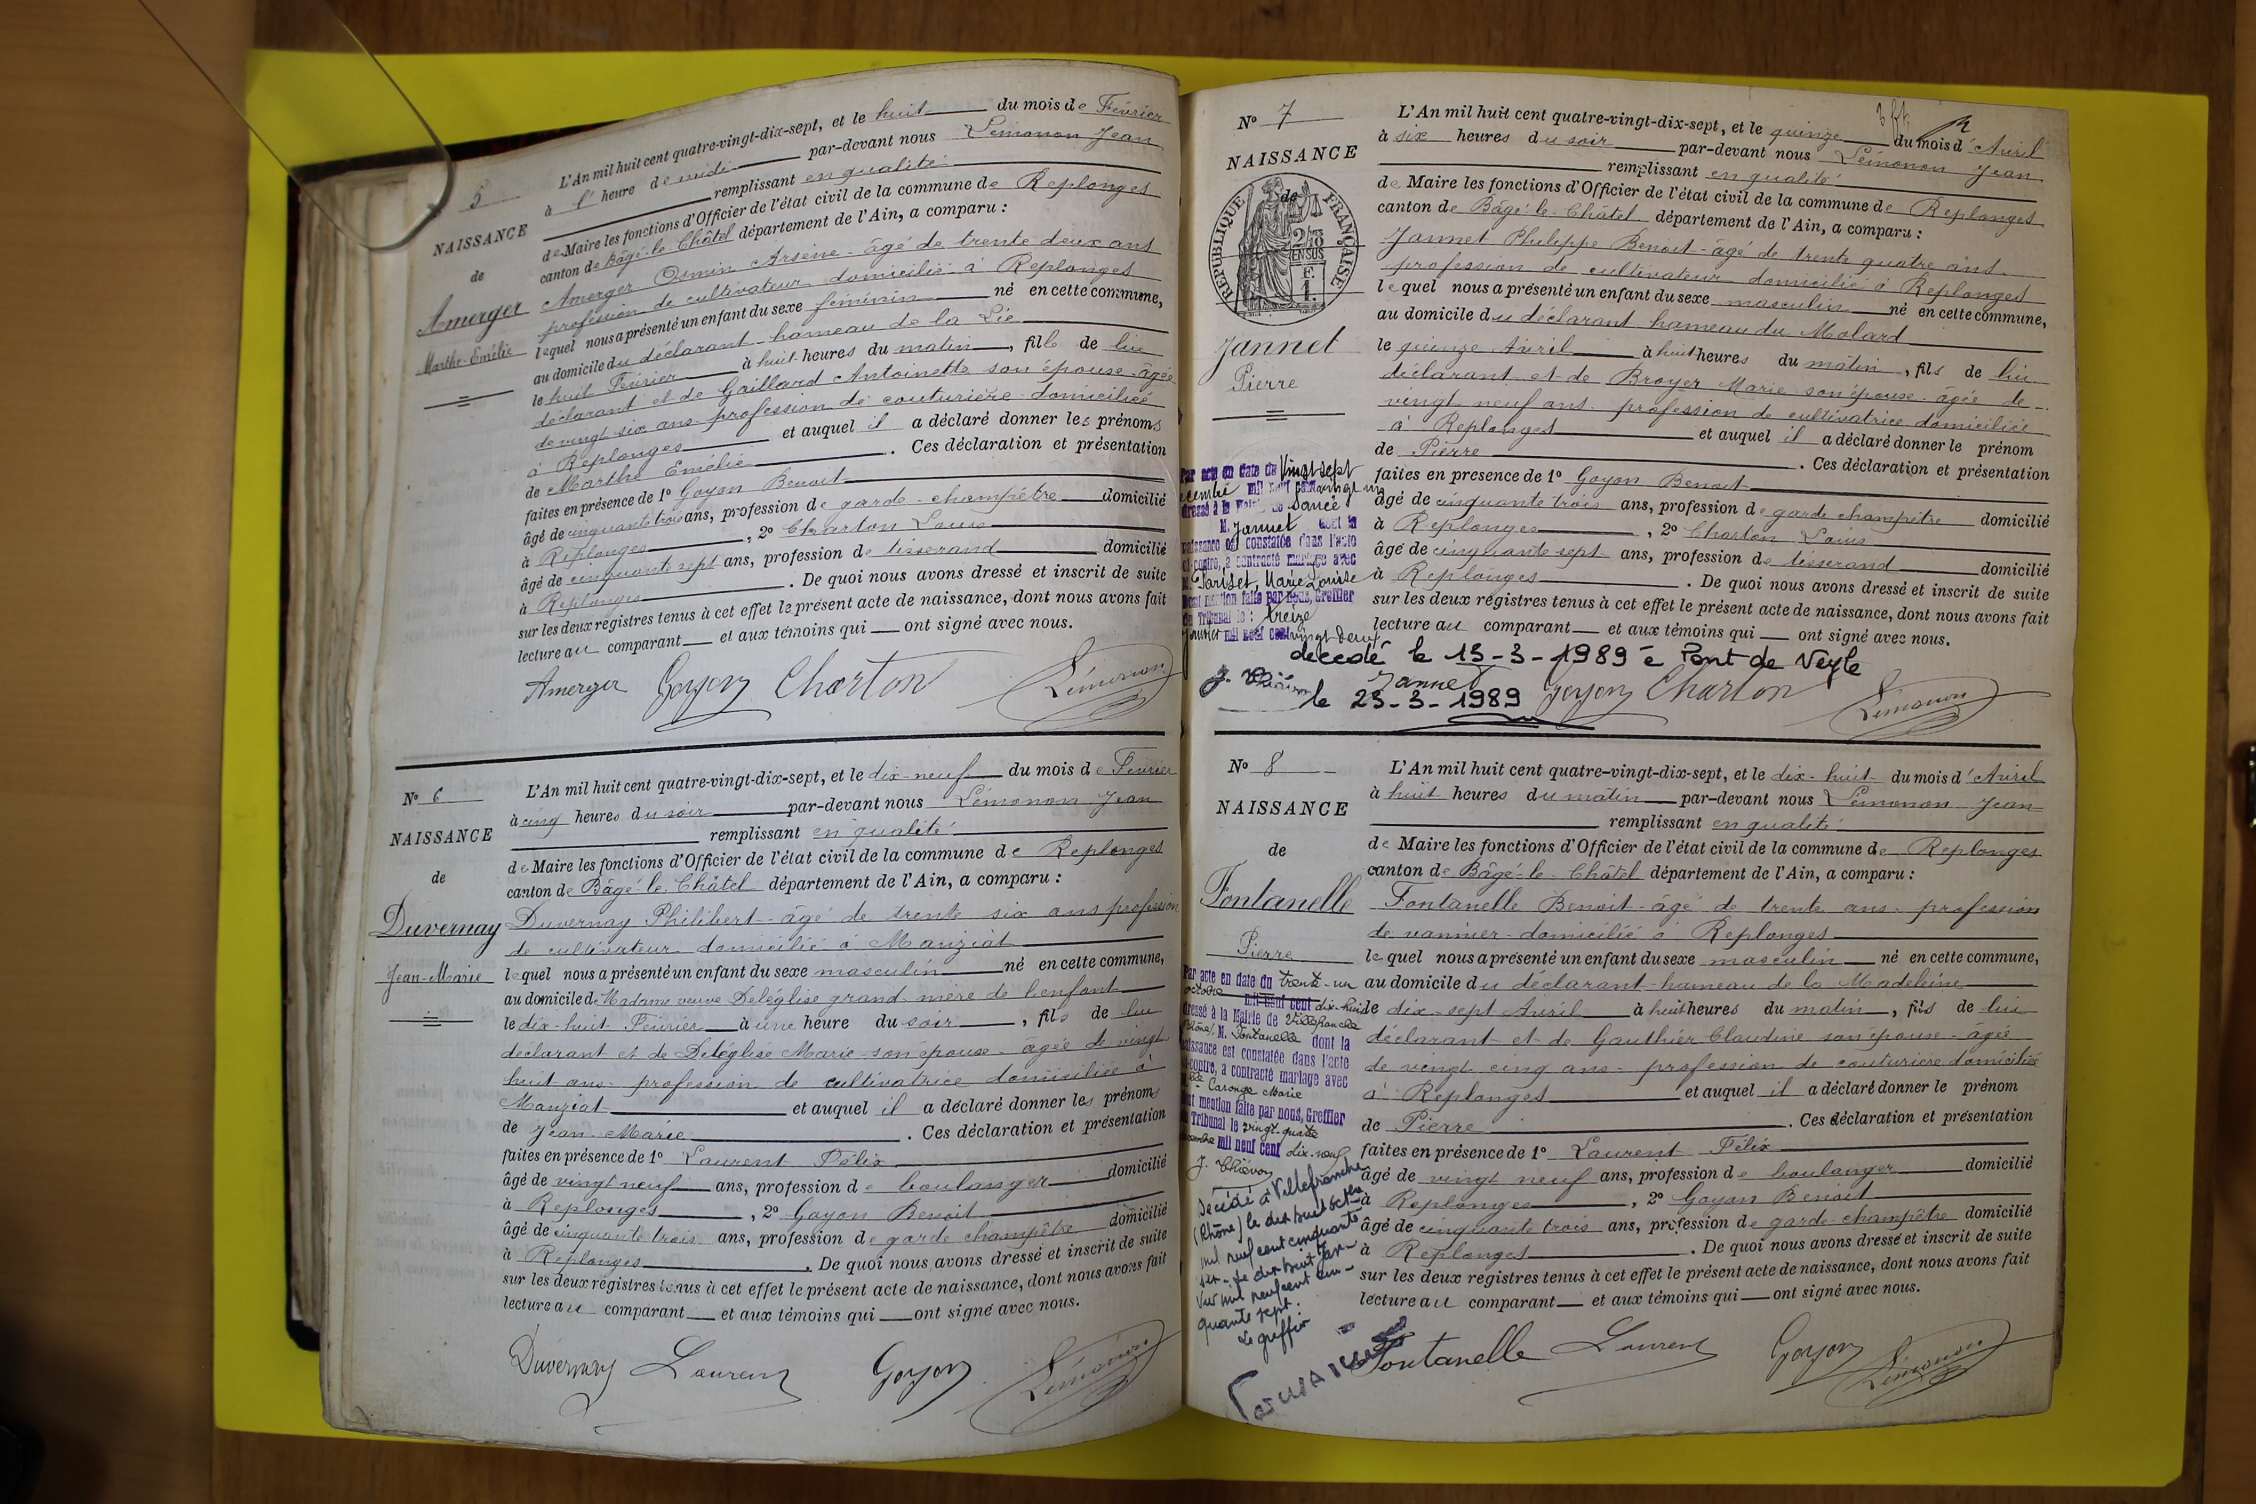 5
NAISSANCE
de
Amerger
Marthe-Emélie
L'An mil huit cent quatre-vingt-dix-sept, et le huit du mois de Février
à l' heure de midi par-devant nous Lémonon Jean
remplissant en qualité
de Maire les fonctions d'Officier de l'état civil de la commune de Replonges
canton de Bâgé-le-Châtel département de l'Ain, a comparu :
Amerger Osmin Arsène âgé de trente deux ans
profession de cultivateur domicilié à Replonges
lequel nous a présenté un enfant du sexe féminin né en cette commune,
au domicile du déclarant hameau de la
le huit Février à huit heures du matin, fille de lui
déclarant et de Gaillard Antoinette son épouse âgée
de vingt six ans profession de couturière domiciliée
à Replonges et auquel il a déclaré donner les prénoms
de Marthe Emélie. Ces déclaration et présentation
faites en présence de 1° Goyon Benoit
âgé de cinquante trois ans, profession de garde-champêtre domicilié
à Replonges, 2° Charton Louis
âgé de cinquante sept ans, profession de tisserand domicilié
à Replonges. De quoi nous avons dressé et inscrit de suite
sur les deux registres tenus à cet effet le présent acte de naissance, dont nous avons fait
lecture au comparant et aux témoins qui ont signé avec nous.
Amerger Goyon Charton Lémonon
N° 6
NAISSANCE
de
Duvernay
Jean-Marie
L'An mil huit cent quatre-vingt-dix-sept, et le dix-neuf du mois de Février
à cinq heures du soir par-devant nous Lémonon Jean
remplissant en qualité
de Maire les fonctions d'Officier de l'état civil de la commune de Replonges
canton de Bâgé-le-Châtel département de l'Ain, a comparu :
Duvernay Philibert âgé de trente six ans profession
de cultivateur domicilié à Manziat
lequel nous a présenté un enfant du sexe masculin né en cette commune,
au domicile de Madame veuve Deléglise grand-mère de l'enfant
le dix-huit Février à une heure du soir, fils de lui
déclarant et de Deléglise Marie son épouse âgée de vingt
huit ans profession de cultivatrice domiciliée à
Manziat et auquel il a déclaré donner les prénoms
de Jean-Marie. Ces déclaration et présentation
faites en présence de 1° Laurent Félix
âgé de vingt neuf ans, profession de boulanger domicilié
à Replonges, 2° Goyon Benoit
âgé de cinquante trois ans, profession de garde champêtre domicilié
à Replonges. De quoi nous avons dressé et inscrit de suite
sur les deux registres tenus à cet effet le présent acte de naissance, dont nous avons fait
lecture au comparant et aux témoins qui ont signé avec nous.
Duvernay Laurent Goyon Lémonon
N° 7
NAISSANCE
de
RÉPUBLIQUE FRANÇAISE
Jannet
Pierre
L'An mil huit cent quatre-vingt-dix-sept, et le quinze du mois d'Avril
à six heures du soir par-devant nous Lémonon Jean
remplissant en qualité
de Maire les fonctions d'Officier de l'état civil de la commune de Replonges
canton de Bâgé-le-Châtel département de l'Ain, a comparu :
Jannet Philippe Benoit âgé de trente quatre ans
profession de cultivateur domicilié à Replonges
lequel nous a présenté un enfant du sexe masculin né en cette commune,
au domicile du déclarant hameau du Molard
le quinze Avril à huit heures du matin, fils de lui
déclarant et de Broyer Marie son épouse âgée de
vingt neuf ans profession de cultivatrice domiciliée
à Replonges et auquel il a déclaré donner le prénom
de Pierre. Ces déclaration et présentation
faites en presence de 1° Goyon Benoit
âgé de cinquante trois ans, profession de garde champêtre domicilié
à Replonges, 2° Charton Louis
âgé de cinquante sept ans, profession de tisserand domicilié
à Replonges. De quoi nous avons dressé et inscrit de suite
sur les deux registres tenus à cet effet le présent acte de naissance, dont nous avons fait
lecture au comparant et aux témoins qui ont signé avec nous.
Par acte en date du vingt sept
mil neuf cent vingt un
dressé à la Mairie de
M. Jannet dont la
naissance est constatée dans l'acte
ci-contre, a contracté mariage avec
Marie Louise
Dont mention faite par nous, Greffier
du Tribunal le : treize
Janvier mil neuf cent vingt deux
décédé le 13-3-1989 à Pont de Veyle
le 23-3-1989
Jannet Goyon Charton Lémonon
N° 8
NAISSANCE
de
Fontanelle
Pierre
L'An mil huit cent quatre-vingt-dix-sept, et le dix-huit du mois d'Avril
à huit heures du matin par-devant nous Lémonon Jean
remplissant en qualité
de Maire les fonctions d'Officier de l'état civil de la commune de Replonges
canton de Bâgé-le-Châtel département de l'Ain, a comparu :
Fontanelle Benoit âgé de trente ans profession
de vannier domicilié à Replonges
lequel nous a présenté un enfant du sexe masculin né en cette commune,
au domicile du déclarant hameau de la Madeleine
le dix-sept Avril à huit heures du matin, fils de lui
déclarant et de Gauthier Claudine son épouse âgée
de vingt cinq ans profession de couturière domiciliée
à Replonges et auquel il a déclaré donner le prénom
de Pierre. Ces déclaration et présentation
faites en présence de 1° Laurent Félix
âgé de vingt neuf ans, profession de boulanger domicilié
à Replonges, 2° Goyon Benoit
âgé de cinquante trois ans, profession de garde-champêtre domicilié
à Replonges. De quoi nous avons dressé et inscrit de suite
sur les deux registres tenus à cet effet le présent acte de naissance, dont nous avons fait
lecture au comparant et aux témoins qui ont signé avec nous.
Par acte en date du trente-un
octobre mil neuf cent dix-huit
dressé à la Mairie de Villefranche
(Rhône) M. Fontanelle dont la
naissance est constatée dans l'acte
ci-contre, a contracté mariage avec
Marie
Dont mention faite par nous, Greffier
du Tribunal le vingt-quatre
mil neuf cent dix-neuf
Décédé à Villefranche
(Rhône) le dix huit
mil neuf cent cinquante
six. Le dix huit Jan-
vier mil neuf cent cin-
quante sept.
Le greffier
Fontanelle Laurent Goyon Lémonon